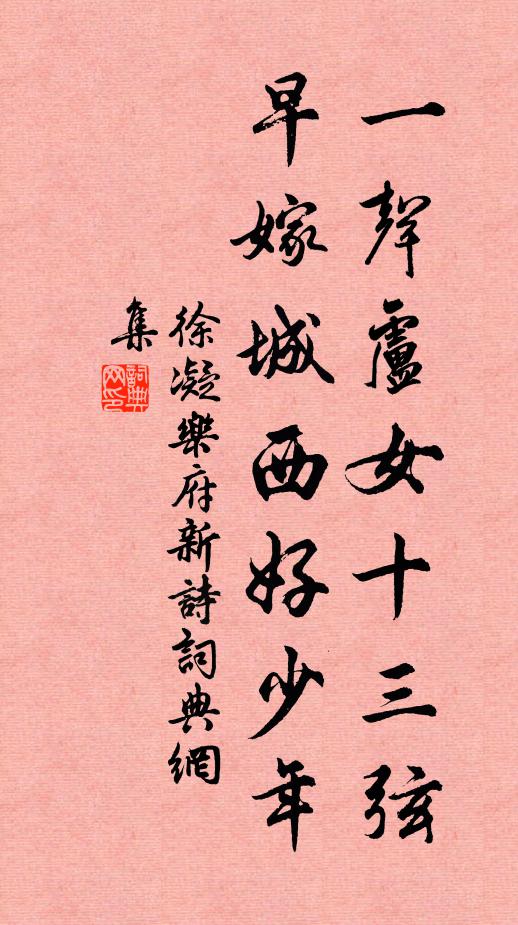 一聲盧女十三弦
早嫁城西好少年
徐凝樂府新詩詞典網
集
詞典
网印